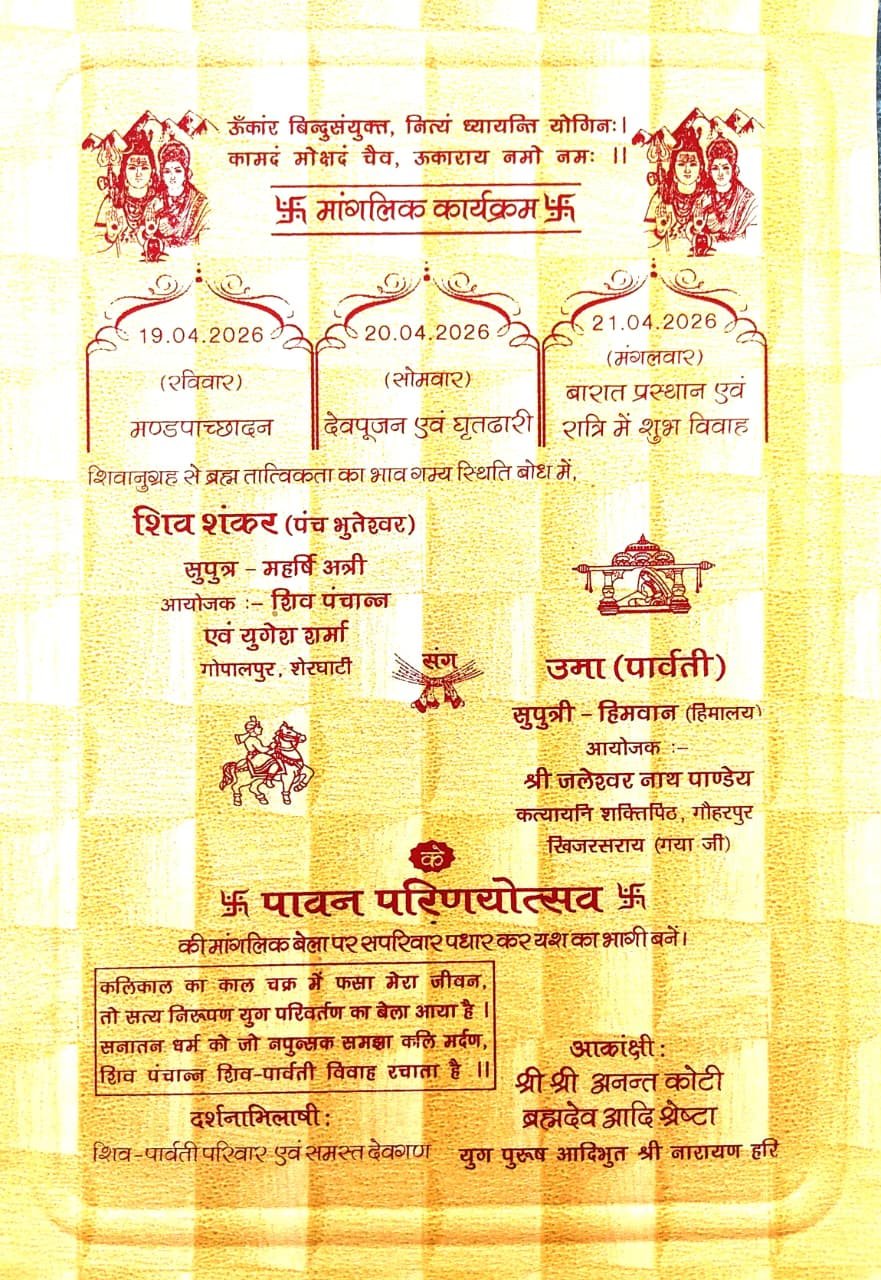 ॐकांर बिन्दुसंयुक्त, नित्यं ध्यायन्ति योगिनः।
कामदं मोक्षदं चैव, ऊकाराय नमो नमः ।।
卐 मांगलिक कार्यक्रम 卐
19.04.2026
(रविवार)
मण्डपाच्छादन
20.04.2026
(सोमवार)
देवपूजन एवं घृतढारी
21.04.2026
(मंगलवार)
बारात प्रस्थान एवं
रात्रि में शुभ विवाह
शिवानुग्रह से ब्रह्म तात्विकता का भाव गम्य स्थिति बोध में,
शिव शंकर (पंच भुतेश्वर)
सुपुत्र – महर्षि अत्री
आयोजक :– शिव पंचान्न
एवं युगेश शर्मा
गोपालपुर, शेरघाटी
संग
उमा (पार्वती)
सुपुत्री – हिमवान (हिमालय)
आयोजक :–
श्री जलेश्वर नाथ पाण्डेय
कत्यायनि शक्तिपिठ, गौहरपुर
खिजरसराय (गया जी)
के
卐 पावन परिणयोत्सव 卐
की मांगलिक बेला पर सपरिवार पधार कर यश का भागी बनें।
कलिकाल का काल चक्र में फसा मेरा जीवन,
तो सत्य निरूपण युग परिवर्तण का बेला आया है ।
सनातन धर्म को जो नपुन्सक समझा कलि मर्दण,
शिव पंचान्न शिव-पार्वती विवाह रचाता है ।।
दर्शनाभिलाषी :
शिव-पार्वती परिवार एवं समस्त देवगण
आकांक्षी :
श्री श्री अनन्त कोटी
ब्रह्मदेव आदि श्रेष्टा
युग पुरूष आदिभुत श्री नारायण हरि